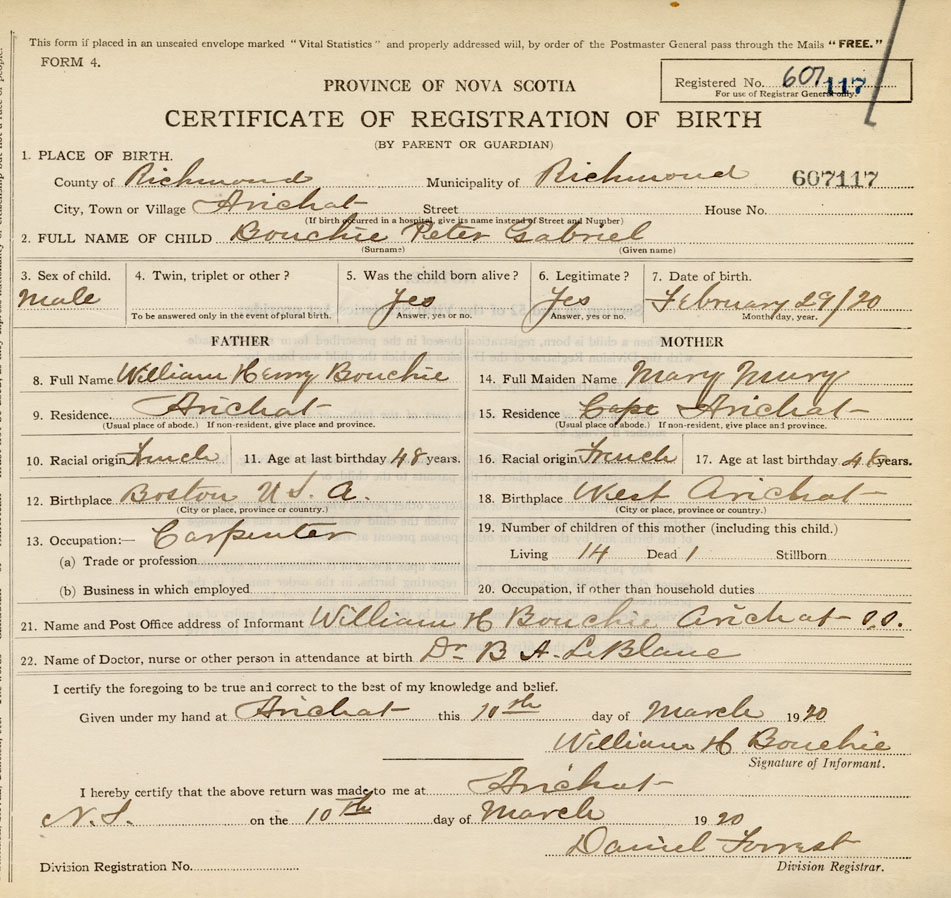 This form if placed in an unsealed envelope marked "Vital Statistics" and properly addressed will, by order of the Postmaster General pass through the Mails "FREE."
FORM 4.
Registered No. 607 117
For use of Registrar General only.
PROVINCE OF NOVA SCOTIA
CERTIFICATE OF REGISTRATION OF BIRTH
(BY PARENT OR GUARDIAN)
1. PLACE OF BIRTH.
County of Richmond Municipality of Richmond 607117
City, Town or Village Arichat Street House No.
(If birth occurred in a hospital, give its name instead of Street and Number)
2. FULL NAME OF CHILD Bouchie Peter Gabriel
(Surname) (Given name)
3. Sex of child. 4. Twin, triplet or other? 5. Was the child born alive? 6. Legitimate? 7. Date of birth.
Male Yes Yes February 29/20
To be answered only in the event of plural birth. Answer, yes or no. Answer, yes or no. Month, day, year.
FATHER MOTHER
8. Full Name William Henry Bouchie 14. Full Maiden Name Mary Mury
9. Residence. Arichat 15. Residence Cape Arichat
(Usual place of abode.) If non-resident, give place and province. (Usual place of abode.) If non-resident, give place and province.
10. Racial origin French 11. Age at last birthday 48 years. 16. Racial origin French 17. Age at last birthday years.
12. Birthplace Boston U.S.A. 18. Birthplace West Arichat
(City or place, province or country.) (City or place, province or country.)
13. Occupation:— Carpenter 19. Number of children of this mother (including this child.)
(a) Trade or profession Living 14 Dead 1 Stillborn
(b) Business in which employed 20. Occupation, if other than household duties
21. Name and Post Office address of Informant William H Bouchie Arichat
22. Name of Doctor, nurse or other person in attendance at birth Dr B A. LeBlanc
I certify the foregoing to be true and correct to the best of my knowledge and belief.
Given under my hand at Arichat this 10th day of March 1920
William H Bouchie
Signature of Informant.
I hereby certify that the above return was made to me at Arichat
N.S. on the 10th day of March 1920
Daniel Forrest
Division Registration No. Division Registrar.